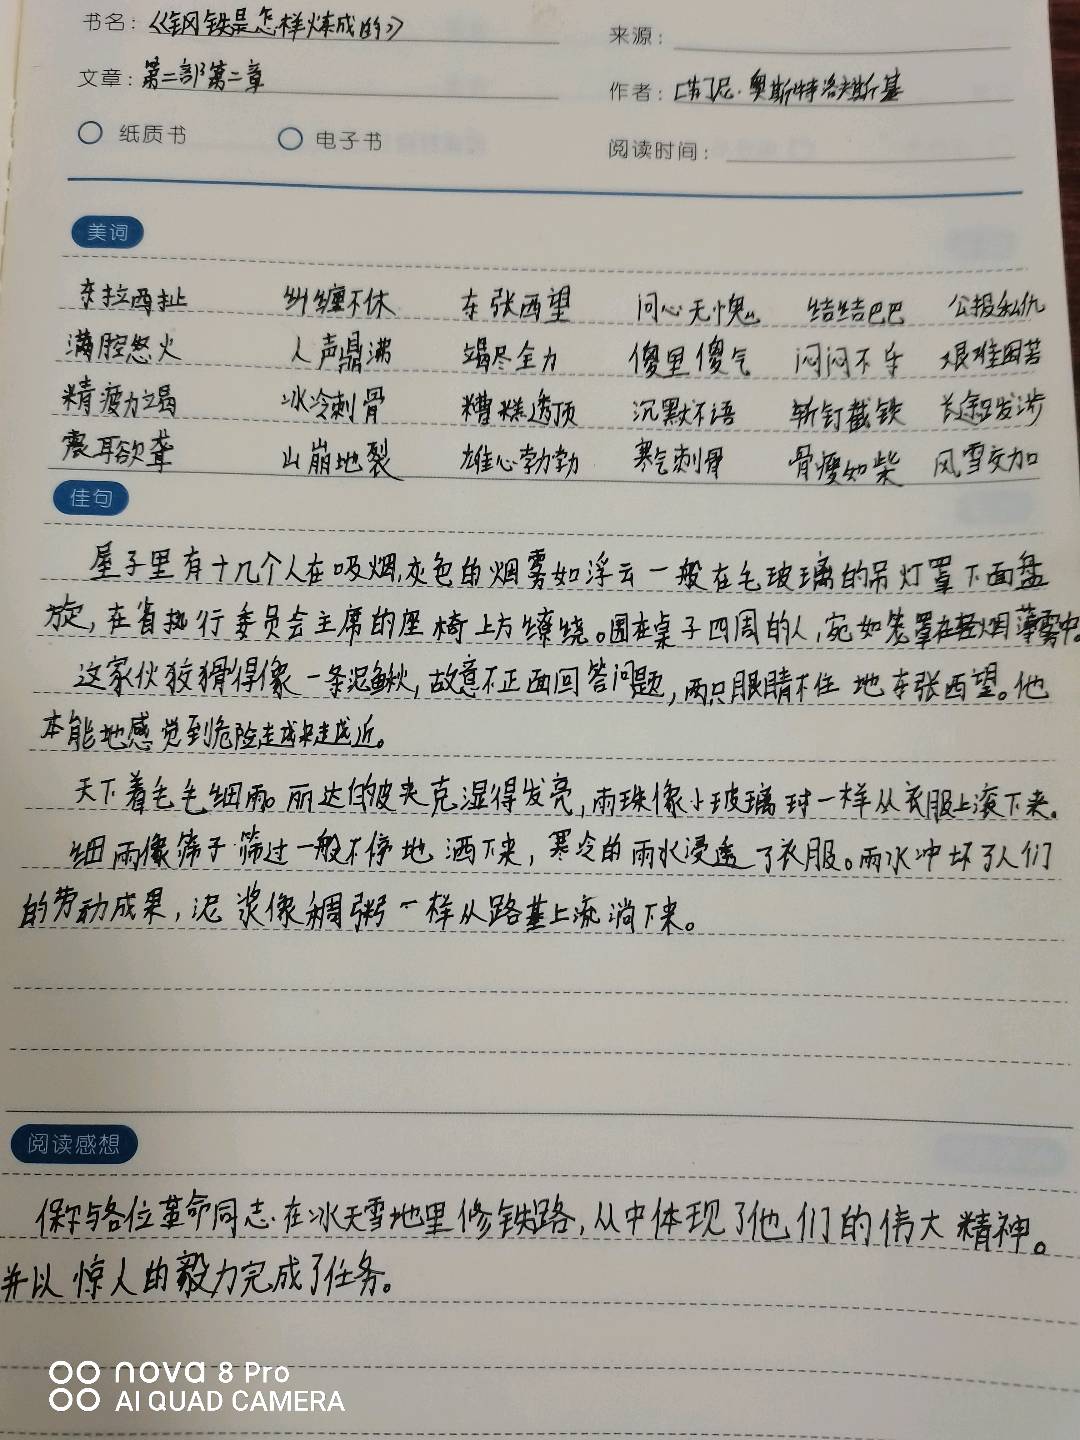 书名:《钢铁是怎样炼成的》
来源:
文章:第二部第二章
作者:[苏]尼·奥斯特洛夫斯基
纸质书 电子书
阅读时间:
美词
东拉西扯 纠缠不休 东张西望 问心无愧 结结巴巴 公报私仇
满腔怒火 人声鼎沸 竭尽全力 傻里傻气 闷闷不乐 艰难困苦
精疲力竭 冰冷刺骨 糟糕透顶 沉默不语 斩钉截铁 长途跋涉
震耳欲聋 山崩地裂 雄心勃勃 寒气刺骨 骨瘦如柴 风雪交加
佳句
屋子里有十几个人在吸烟,灰色的烟雾如浮云一般在毛玻璃的吊灯罩下面盘
旋,在省执行委员会主席的座椅上方缭绕。围在桌子四周的人,宛如笼罩在轻烟薄雾中。
这家伙狡猾得像一条泥鳅,故意不正面回答问题,两只眼睛不住地东张西望。他
本能地感觉到危险越来越近。
天下着毛毛细雨。丽达的皮夹克湿得发亮,雨珠像小玻璃球一样从衣服上滚下来。
细雨像筛子筛过一般不停地洒下来,寒冷的雨水浸透了衣服。雨水冲坏了人们
的劳动成果,泥浆像稠粥一样从路基上流淌下来。
阅读感想
保尔与各位革命同志在冰天雪地里修铁路,从中体现了他们的伟大精神。
并以惊人的毅力完成了任务。
nova 8 Pro
AI QUAD CAMERA